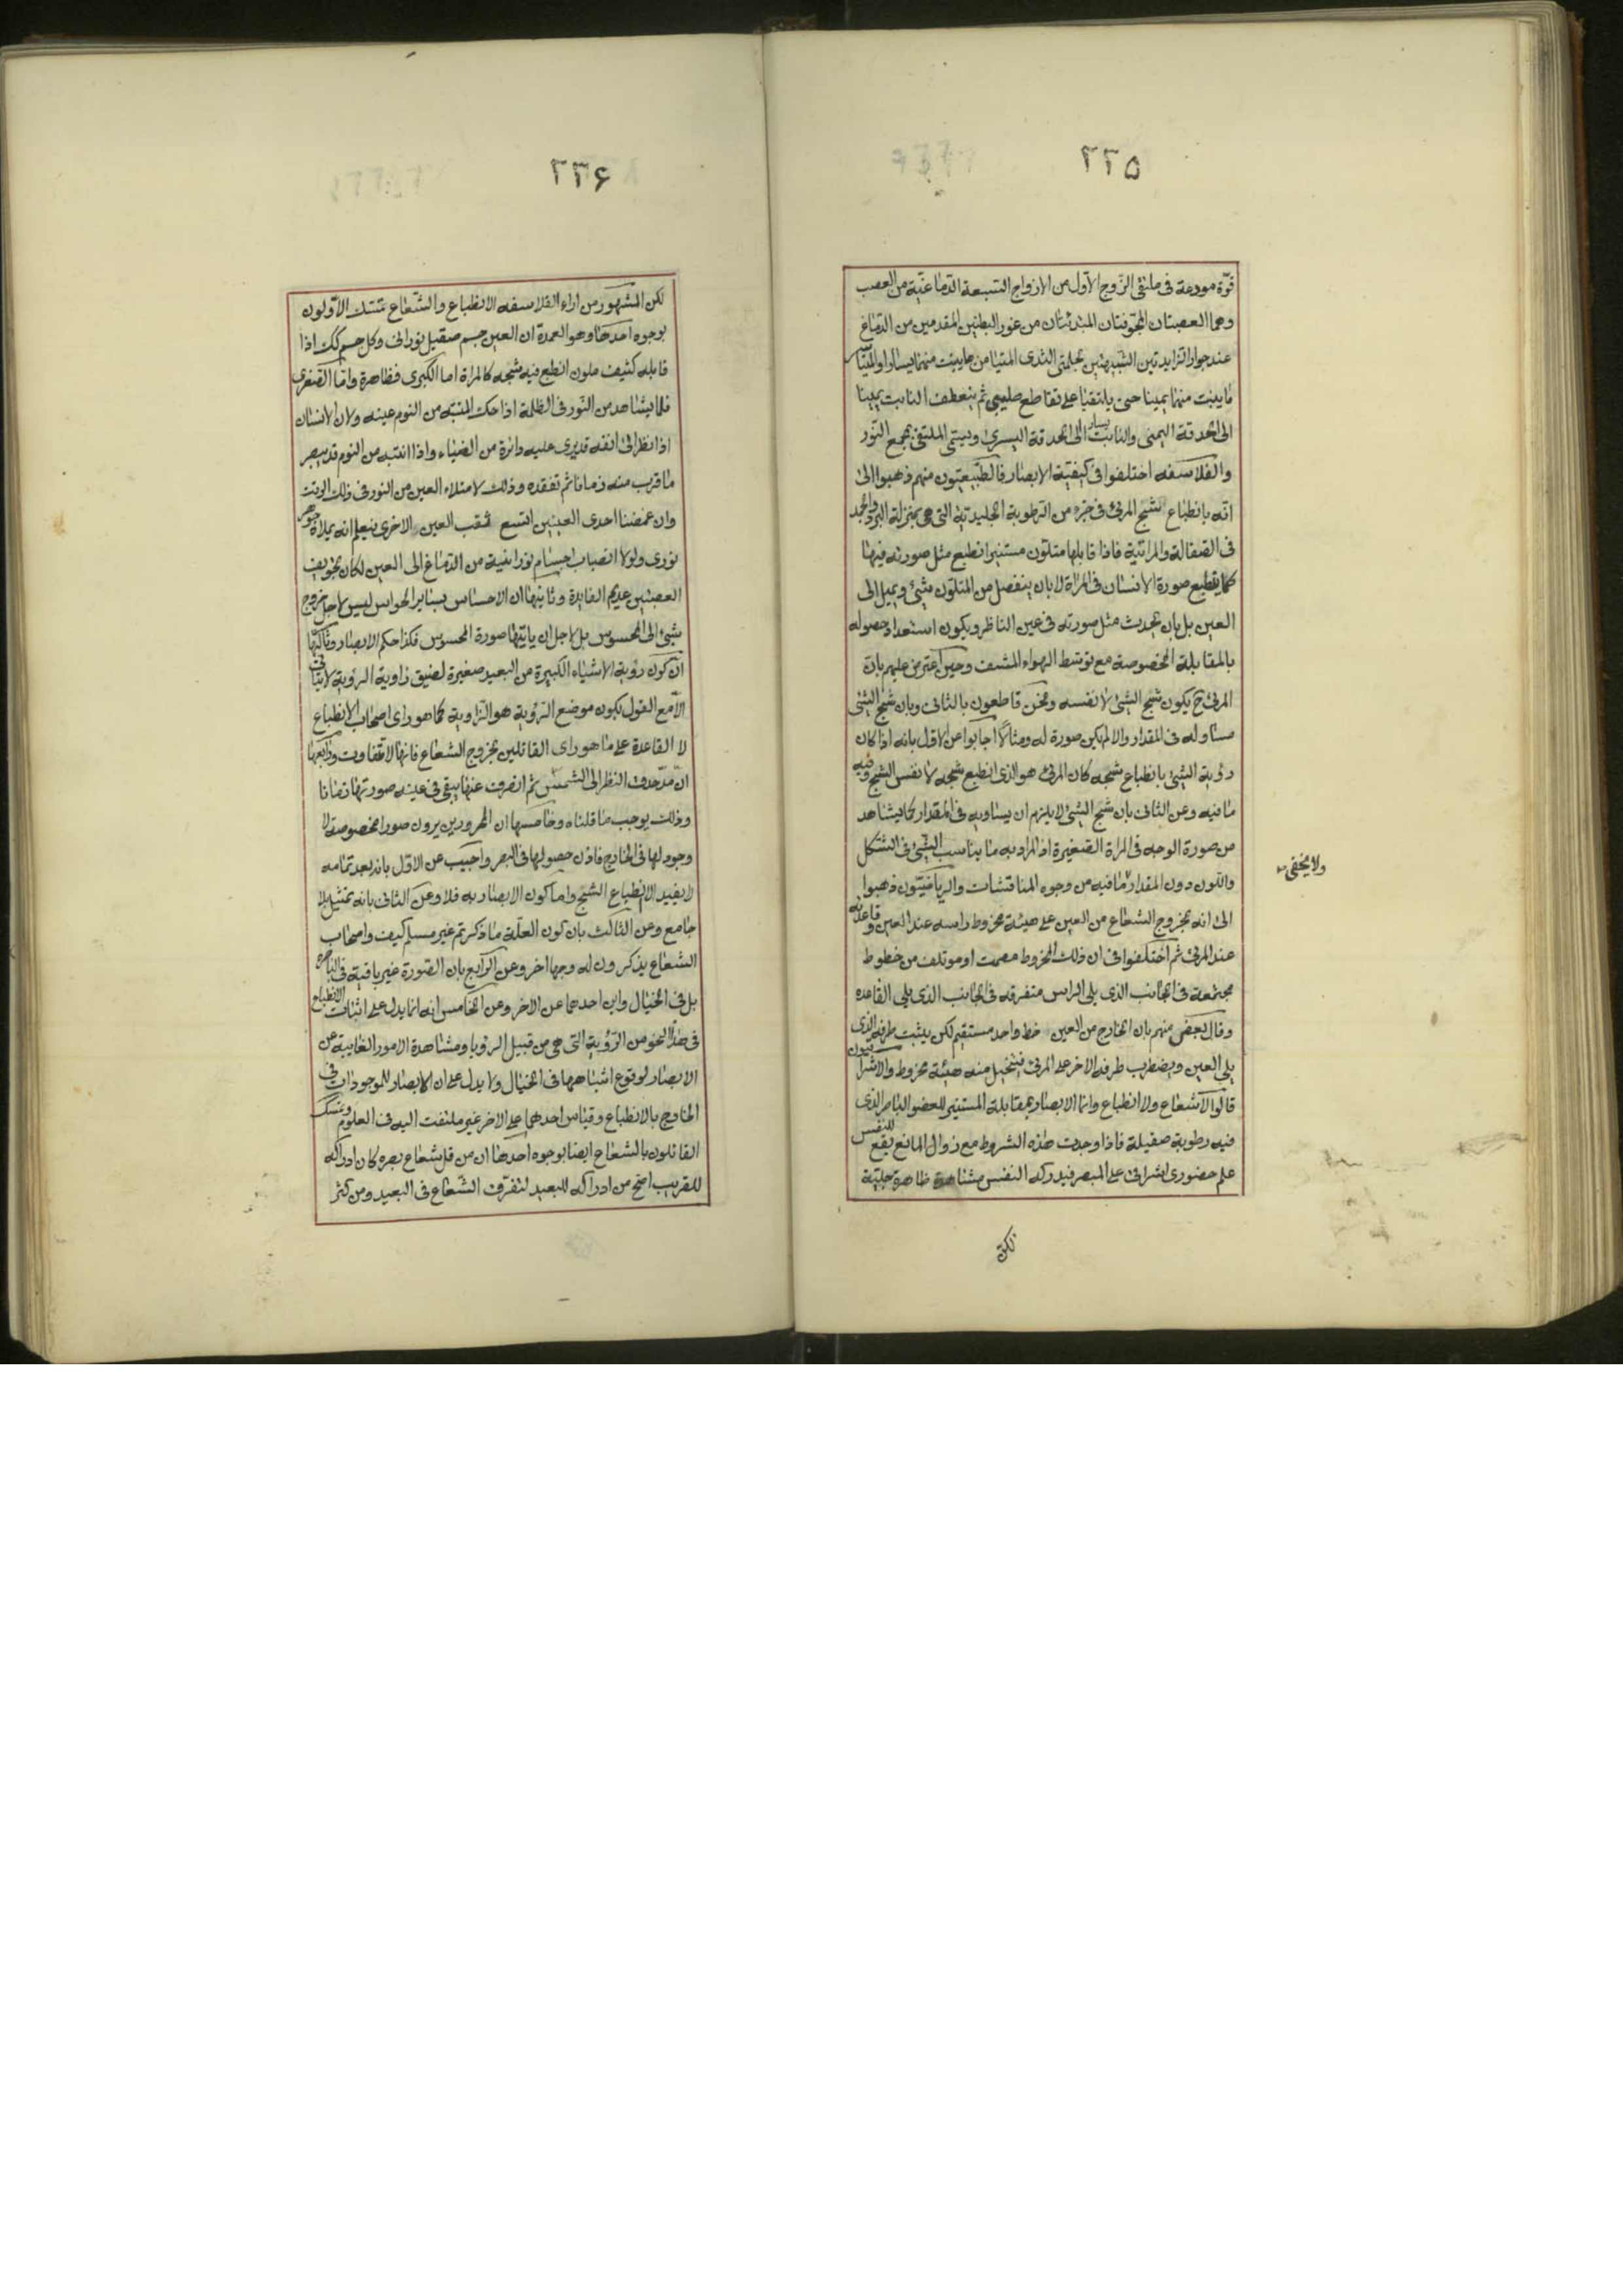 ٢٣٥
قوّة مودعة فى ملتقى الزّوج الأوّل من الازواج السّبعة الدّماغيّة من العصب
وهما العصبتان المجوّفتان المبتدئتان من غور البطنين المقدمين من الدّماغ
عند جوار الزايدتين الشّبيهتين بحلمتى الثدى المتيامن ما ينبت منهما يسارا والمتياسر
ما ينبت منهما يمينا حتى يلتقيا على تقاطع صليبى ثم ينعطف النابت يمينا
الى الحدقة اليمنى والنابت يسارا الى الحدقة اليسرى ويسمّى الملتقى بمجمع النّور
والفلاسفه اختلفوا فى كيفيّة الابصار فالطّبيعيّون منهم ذهبوا الى
انّه بانطباع شبح المرئى فى جزء من الرّطوبة الجليديّة التى هى بمنزلة البرد والجمد
فى الصّقالة والمرائيّة فاذا قابلها متلوّن مستنير انطبع مثل صورته فيها
كما ينطبع صورة الانسان فى المراة لا بان ينفصل من المتلوّن شئ ويميل الى
العين بل بان يحدث مثل صورته فى عين الناظر ويكون استعداد حصوله
بالمقابلة المخصوصة مع توسّط الهواء المشف وحين اعترض عليهم بان
المرئى ح يكون شبح الشئ لا نفسه ونحن قاطعون بالثانى وبان شبح الشئ
مساو له فى المقدار والا لم يكن صورة له ومثالا اجابوا عن الاول بانه اذا كان
رؤية الشئ بانطباع شبحه كان المرئى هو الذى انطبع شبحه لا نفس الشبح وفيه
ما فيه وعن الثانى بان شبح الشئ لا يلزم ان يساويه فى المقدار كما يشاهد
من صورة الوجه فى المراة الصّغيرة اذ المراد به ما يناسب الشئ فى الشكل
واللّون دون المقدار ما فيه من وجوه المناقشات والرياضيّون ذهبوا
ولا يخفى
الى انه بخروج الشعاع من العين على هيئة مخروط راسه عند العين وقاعدته
عند المرئى ثم اختلفوا فى ان ذلك المخروط مصمت او موتلف من خطوط
مجتمعة فى الجانب الذى يلى الراس متفرقه فى الجانب الذى يلى القاعده
وقال بعض منهم بان الخارج من العين خط واحد مستقيم لكن يثبت طرفه الذى
يلى العين ويضطرب طرفه الاخر على المرئى فيتخيل منه هيئة مخروط والاشراقيون
قالوا لا شعاع ولا انطباع وانما الابصار بمقابلة المستنير للعضو الباصر الذى
فيه رطوبة صقيلة فاذا وجدت هذه الشروط مع زوال المانع يقع للنفس
علم حضورى اشراقى على المبصر فيدركه النفس مشاهدة ظاهرة جلية
لكن
٢٣۶
لكن المشهور من اراء الفلاسفه الانطباع والشّعاع تمسّك الاوّلون
بوجوه احدها وهو العمدة ان العين جسم صقيل نورانى وكل جسم كك اذا
قابله كثيف ملون انطبع فيه شبحه كالمراة اما الكبرى فظاهرة وامّا الصغرى
فلما يشاهد من النّور فى الظلمة اذا حك المتنبّه من النوم عينه ولان الانسان
اذا نظر الى انفه قد يرى عليه دائرة من الضياء واذا انتبه من النوم قد يبصر
ما قرب منه زمانا ثم تفقده وذلك لامتلاء العين من النور فى ذلك الوقت
وان غمضنا احدى العينين اتسع ثقب العين الاخرى فيعلم انه يملاه جوهر
نورى ولولا انصباب اجسام نورانية من الدّماغ الى العين لكان تجويف
العصبتين عديم الفايدة وثانيها ان الاحساس بساير الحواس ليس لاجل خروج
شئ الى المحسوس بل لاجل ان ياتيها صورة المحسوس فكذا حكم الابصار وثالثها
ان كون رؤية الاشياء الكبيرة من البعيد صغيرة لضيق زاوية الرؤية لا يتاتى
الا مع القول بكون موضع الرّؤية هو الزاوية كما هو راى اصحاب الانطباع
لا القاعدة على ما هو راى القائلين بخروج الشعاع فانها لا تتفاوت ورابعها
ان من حدق النظر الى الشمس ثم انصرف عنها يبقى فى عينه صورتها زمانا
وذلك يوجب ما قلناه وخامسها ان الممرورين يرون صورا مخصوصة لا
وجود لها فى الخارج فاذن حصولها فى البصر واجيب عن الاوّل بانه بعد تمامه
لا يفيد الا انطباع الشبح واما كون الابصار به فلا وعن الثانى بانه تمثيل بلا
جامع وعن الثالث بان كون العلّة ما ذكرتم غير مسلم كيف واصحاب
الشعاع يذكرون له وجها اخر وعن الرابع بان الصّورة غير باقية فى الباصره
بل فى الخيال واين احدهما عن الاخر وعن الخامس انه انما يدل على اثبات الانطباع
فى هذا النحو من الرّؤية التى هى من قبيل الرؤيا ومشاهدة الامور الغايبة عن
الابصار لوقوع اشباهها فى الخيال ولا يدل على ان الابصار للموجودات فى
الخارج بالانطباع وقياس احدهما على الاخر غير ملتفت اليه فى العلوم وتمسك
القائلون بالشعاع ايضا بوجوه احدها ان من قل شعاع بصره كان ادراكه
للقريب اصح من ادراكه للبعيد لتفرّق الشّعاع فى البعيد ومن كثر